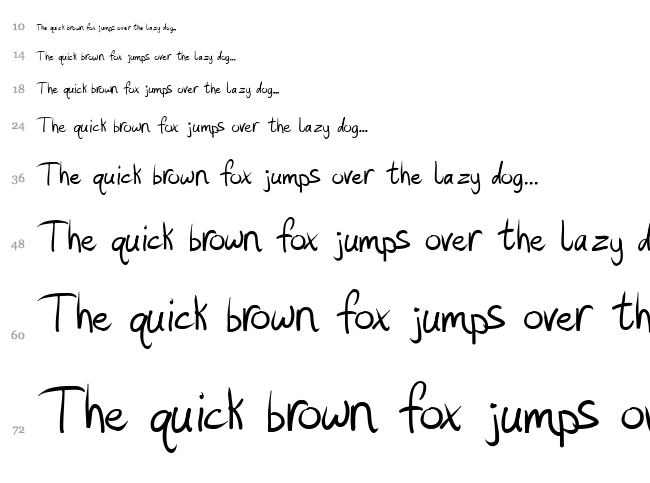 10 The quick brown fox jumps over the lazy dog...
14 The quick brown fox jumps over the lazy dog...
18 The quick brown fox jumps over the lazy dog...
24 The quick brown fox jumps over the lazy dog...
36 The quick brown fox jumps over the lazy dog...
48 The quick brown fox jumps over the lazy d
60 The quick brown fox jumps over th
72 The quick brown fox jumps ov